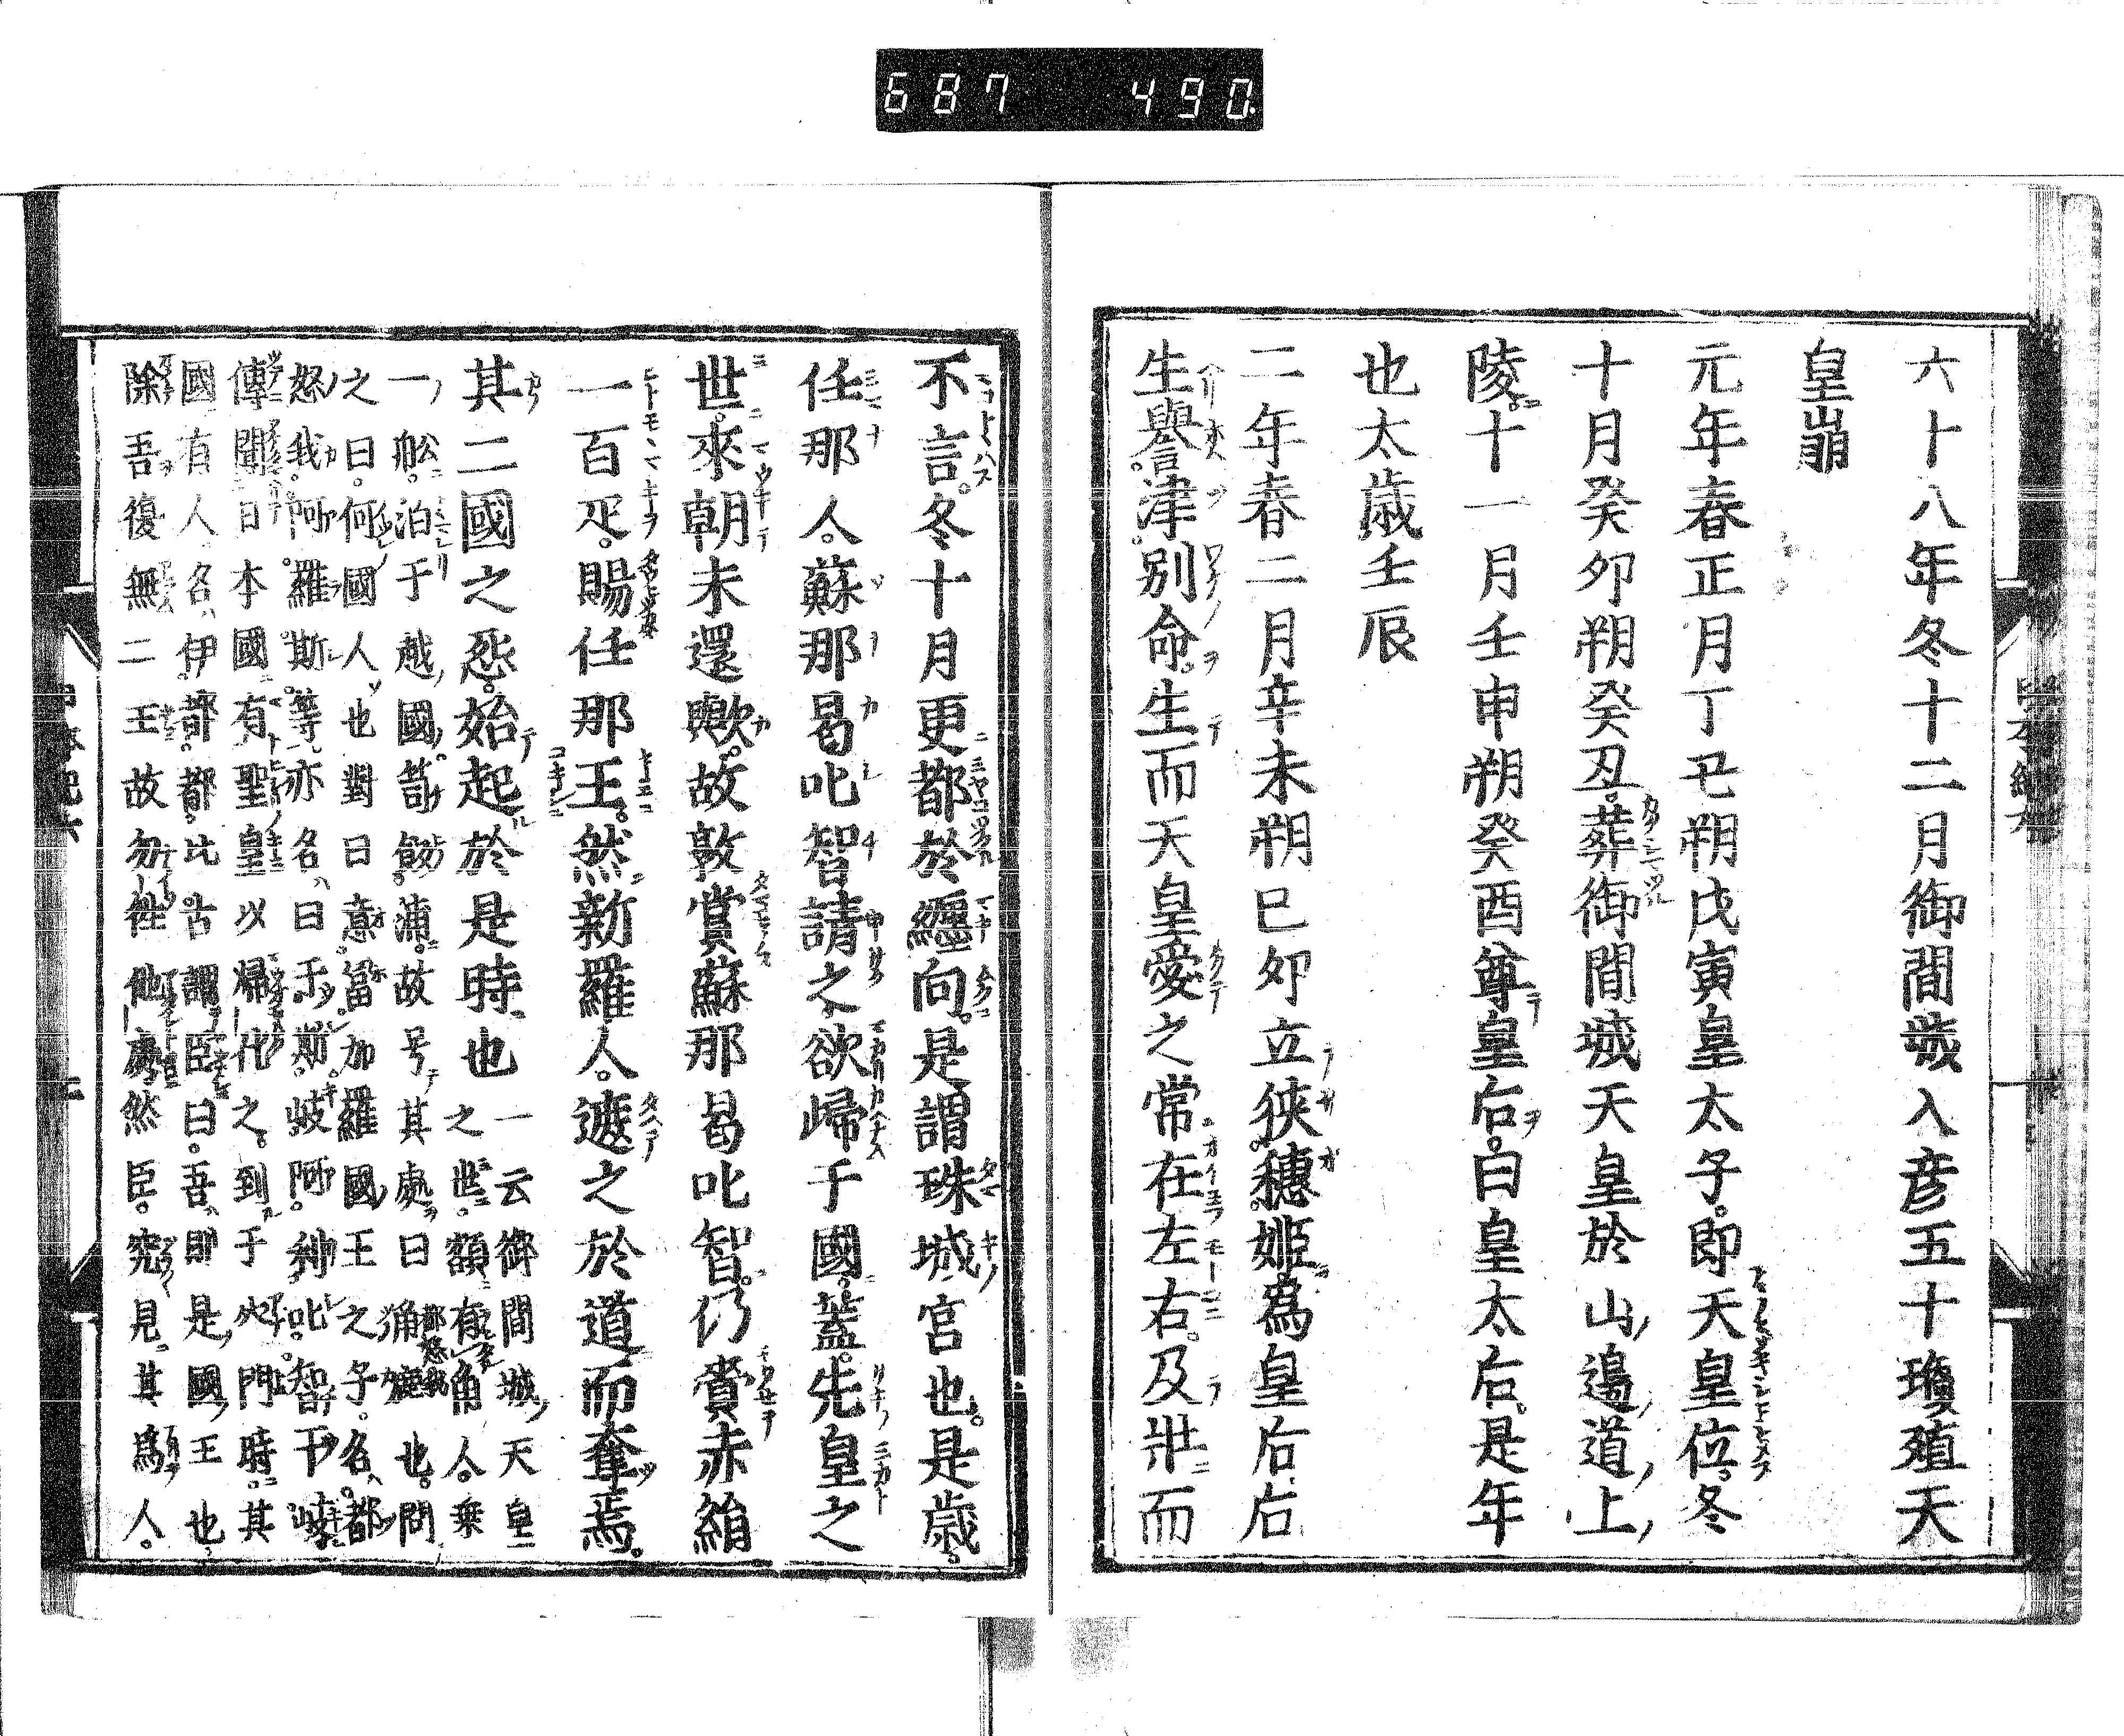 687 490
六十八年冬十二月御間城入彦五十瓊殖天
皇崩
元年春正月丁丑朔戊寅皇太子即天皇位冬
十月癸卯朔癸丑葬御間城天皇於山邊道上
陵十一月壬申朔癸酉尊皇后曰皇太后是年
也太歳壬辰
二年春二月辛未朔己卯立狹穗姬為皇后后
生譽津別命生而天皇愛之常在左右及壯而
不言冬十月更都於纏向是謂珠城宮也是歳
任那人蘇那曷叱智請之欲歸于國蓋先皇之
世來朝未還歟故敦賞蘇那曷叱智仍賚赤絹
一百疋賜任那王然新羅人遮之於道而奪焉
其二國之怨始起於是時也
一云御間城天皇
之世額有角人乗
一舩泊于越國笥飯浦故号其處曰角鹿也問
之曰何國人也對曰意富加羅國王之子名都
怒我阿羅斯等亦名曰于斯岐阿利叱智干岐
傳聞日本國有聖皇以歸化之到于穴門時其
國有人名伊都都比古謂臣曰吾則是國王也
除吾復無二王故勿徃他處然臣究見其為人